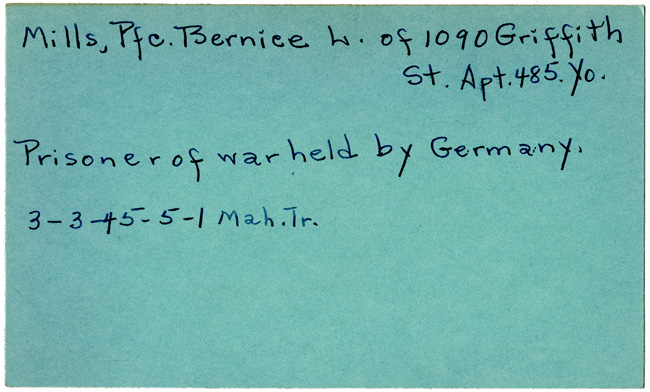 Mills, Pfc. Bernice L. of 1090 Griffith
St. Apt. 485. Yo.
Prisoner of war held by Germany.
3-3-45-5-1 Mah. Tr.